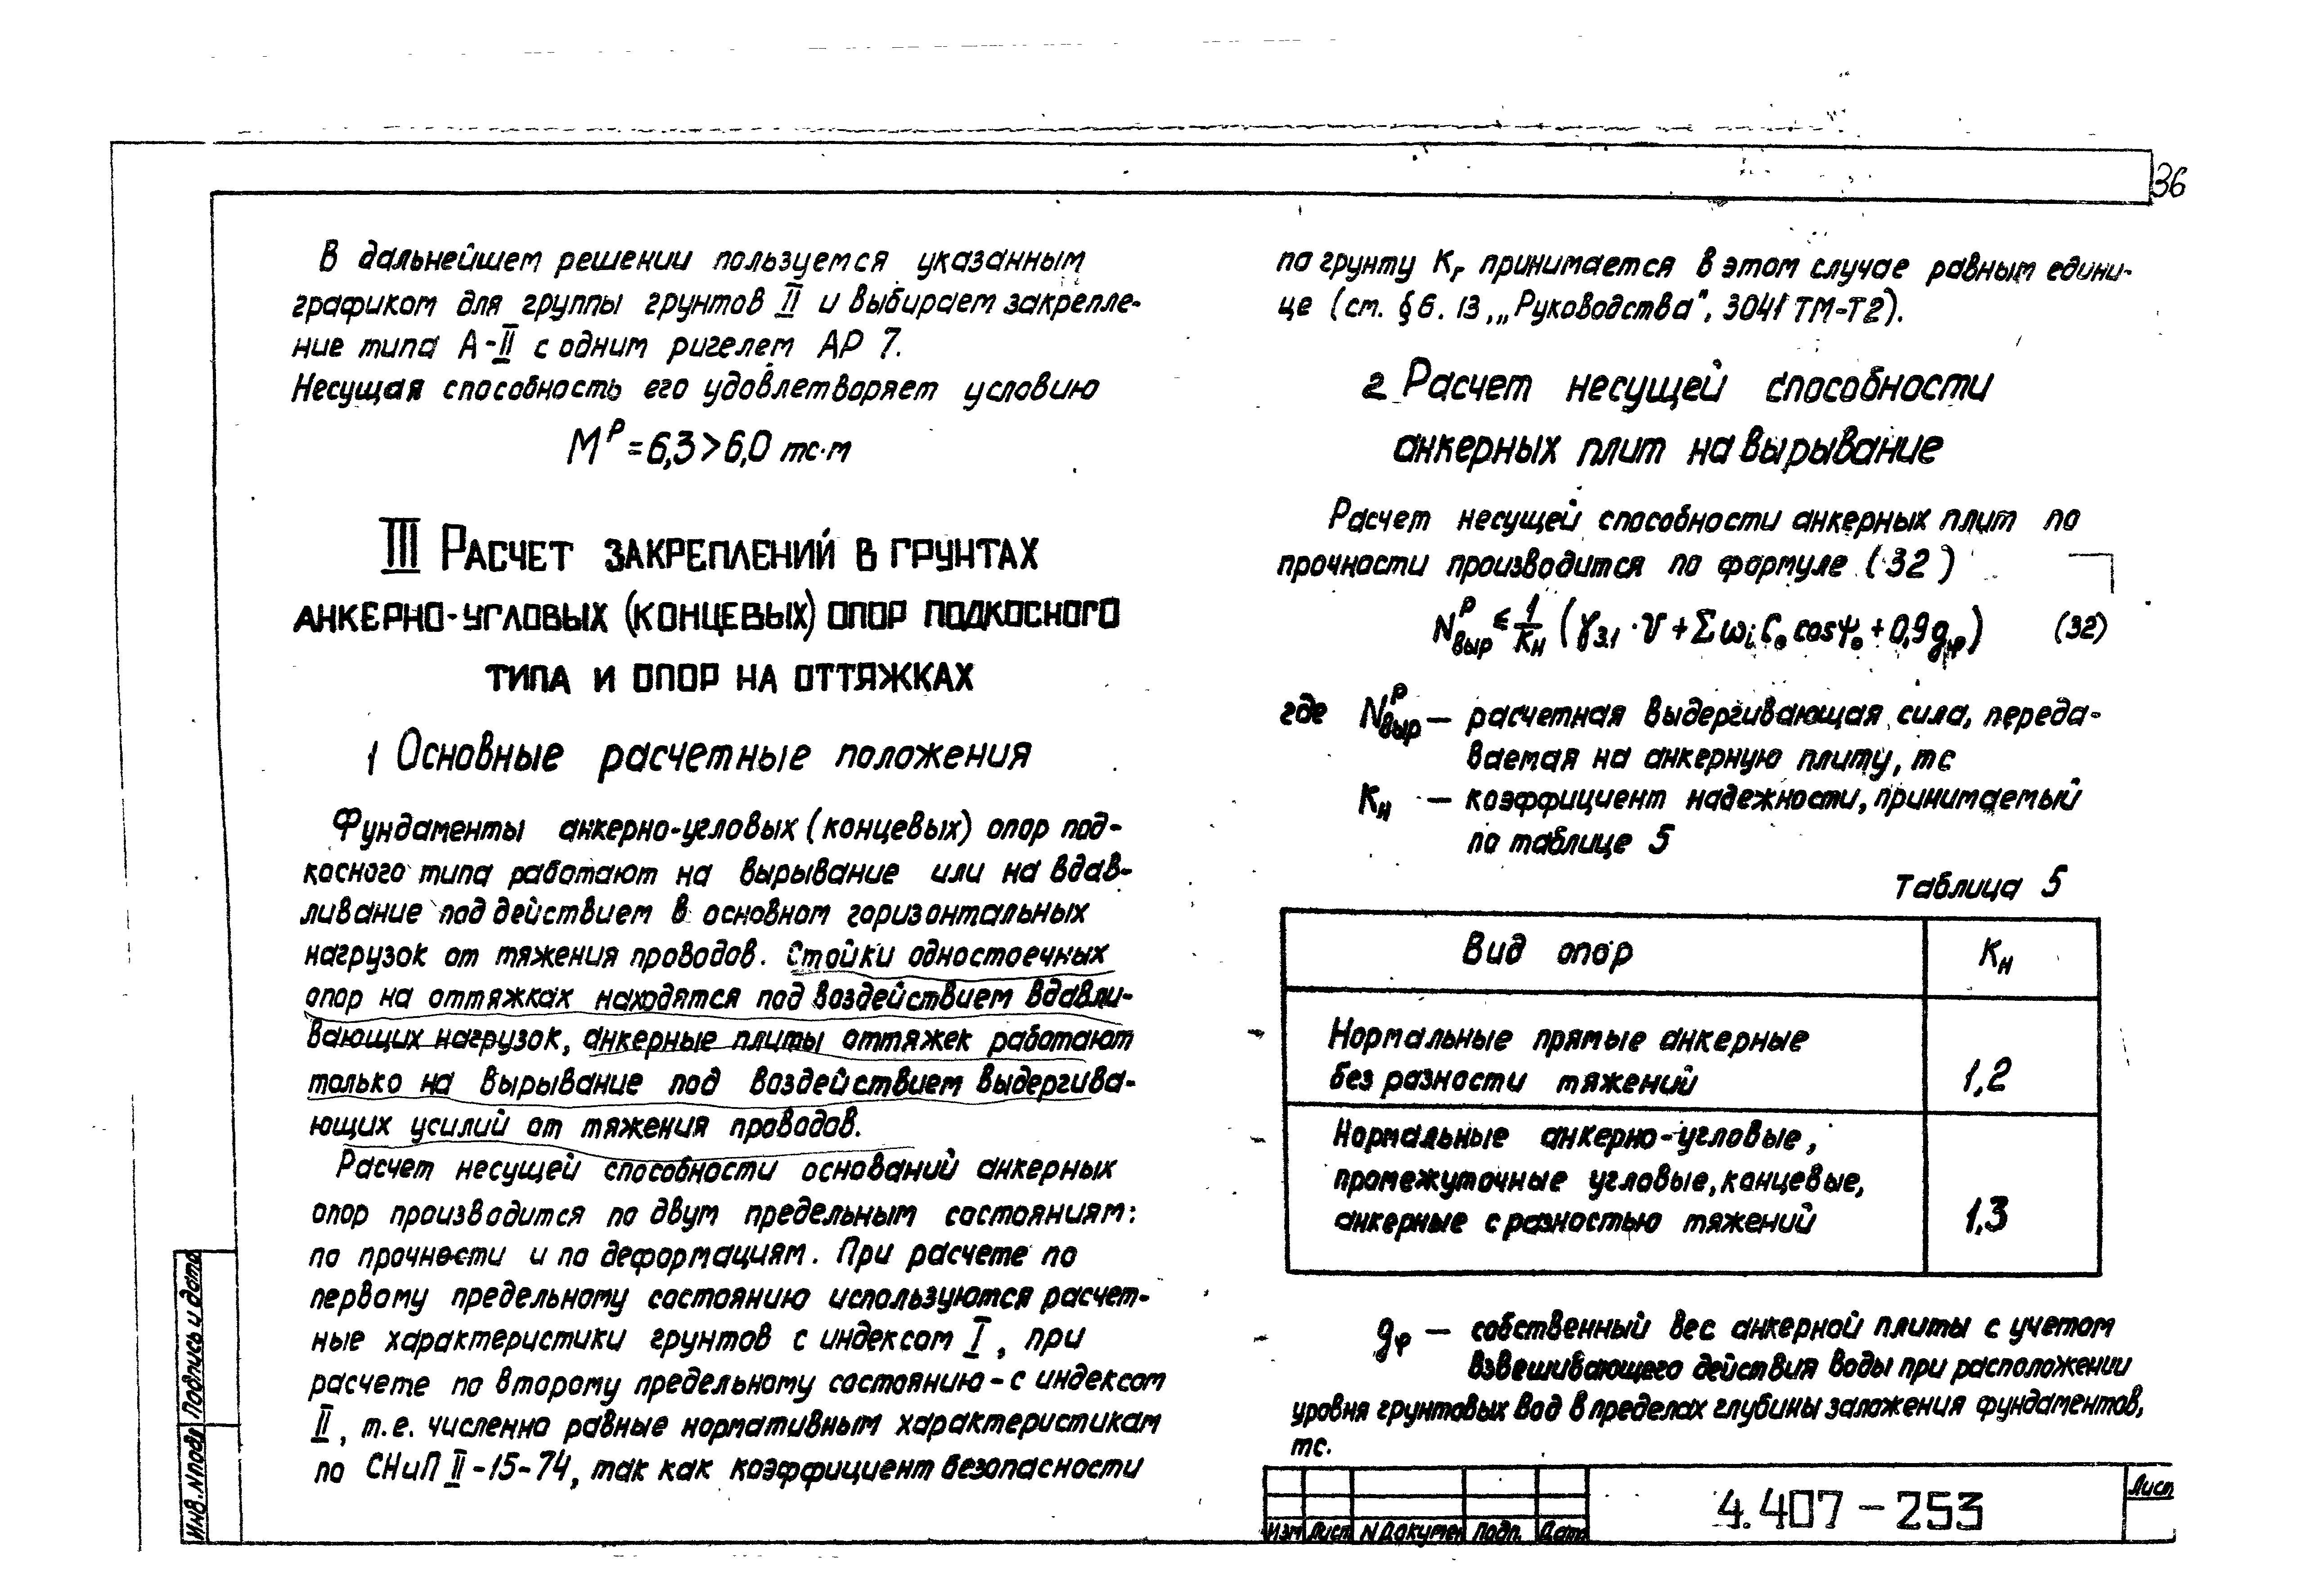 36
В дальнейшем решении пользуется указанным
графиком для группы грунтов II и выбираем закрепле-
ние типа А-II с одним ригелем АР 7.
Несущая способность его удовлетворяет условию
Mᴾ = 6,3 > 6,0 тс·м
III Расчет закреплений в грунтах
анкерно-угловых (концевых) опор подкосного
типа и опор на оттяжках
1 Основные расчетные положения
Фундаменты анкерно-угловых (концевых) опор под-
косного типа работают на вырывание или на вдав-
ливание под действием в основном горизонтальных
нагрузок от тяжения проводов. Стойки одностоечных
опор на оттяжках находятся под воздействием вдавли-
вающих нагрузок, анкерные плиты оттяжек работают
только на вырывание под воздействием выдергива-
ющих усилий от тяжения проводов.
Расчет несущей способности оснований анкерных
опор производится по двум предельным состояниям:
по прочности и по деформациям. При расчете по
первому предельному состоянию используются расчет-
ные характеристики грунтов с индексом I, при
расчете по второму предельному состоянию - с индексом
II, т.е. численно равные нормативным характеристикам
по СНиП II-15-74, так как коэффициент безопасности
по грунту Kг принимается в этом случае равным едини-
це (ст. §6. 13, „Руководства", 3041 ТМ-Т2).
2 Расчет несущей способности
анкерных плит на вырывание
Расчет несущей способности анкерных плит по
прочности производится по формуле (32)
Nᴾвыр ≤ 1/Kн (γз.1 · V + Σ ωi C₀ cos ψ₀ + 0,9 gф) (32)
где Nᴾвыр — расчетная выдергивающая сила, переда-
ваемая на анкерную плиту, тс
Kн — коэффициент надежности, принимаемый
по таблице 5
Таблица 5
Вид опор Kн
Нормальные прямые анкерные
без разности тяжений 1,2
Нормальные анкерно-угловые,
промежуточные угловые, концевые,
анкерные с разностью тяжений 1,3
gф — собственный вес анкерной плиты с учетом
взвешивающего действия воды при расположении
уровня грунтовых вод в пределах глубины заложения фундаментов,
тс.
Изм Лист N Докумен Подп. Дата
4.407-253
Лист
Инв. N подл Подпись и дата